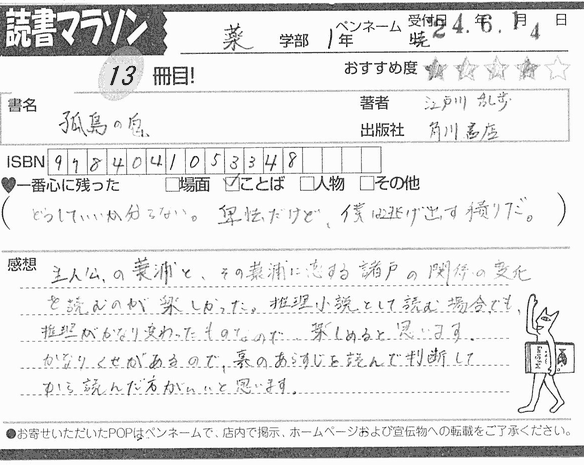 読書マラソン
薬 学部 1年 ペンネーム 暁 受付日 24年6.14日
13 冊目!
おすすめ度 ★★★★☆
書名 孤島の鬼
著者 江戸川 乱歩
出版社 角川書店
ISBN 9784041053348
♥一番心に残った □場面 ☑ことば □人物 □その他
(どうしていいか分らない。卑怯だけど、僕は逃げ出す積りだ。)
感想
主人公の蓑浦と、その蓑浦に恋する諸戸の関係の変化
を読むのが楽しかった。推理小説として読む場合でも、
推理がかなり変わったものなので、楽しめると思います。
かなりくせがあるので、裏のあらすじを読んで判断して
から読んだ方がいいと思います。
●お寄せいただいたPOPはペンネームで、店内で掲示、ホームページおよび宣伝物への転載をご了承ください。